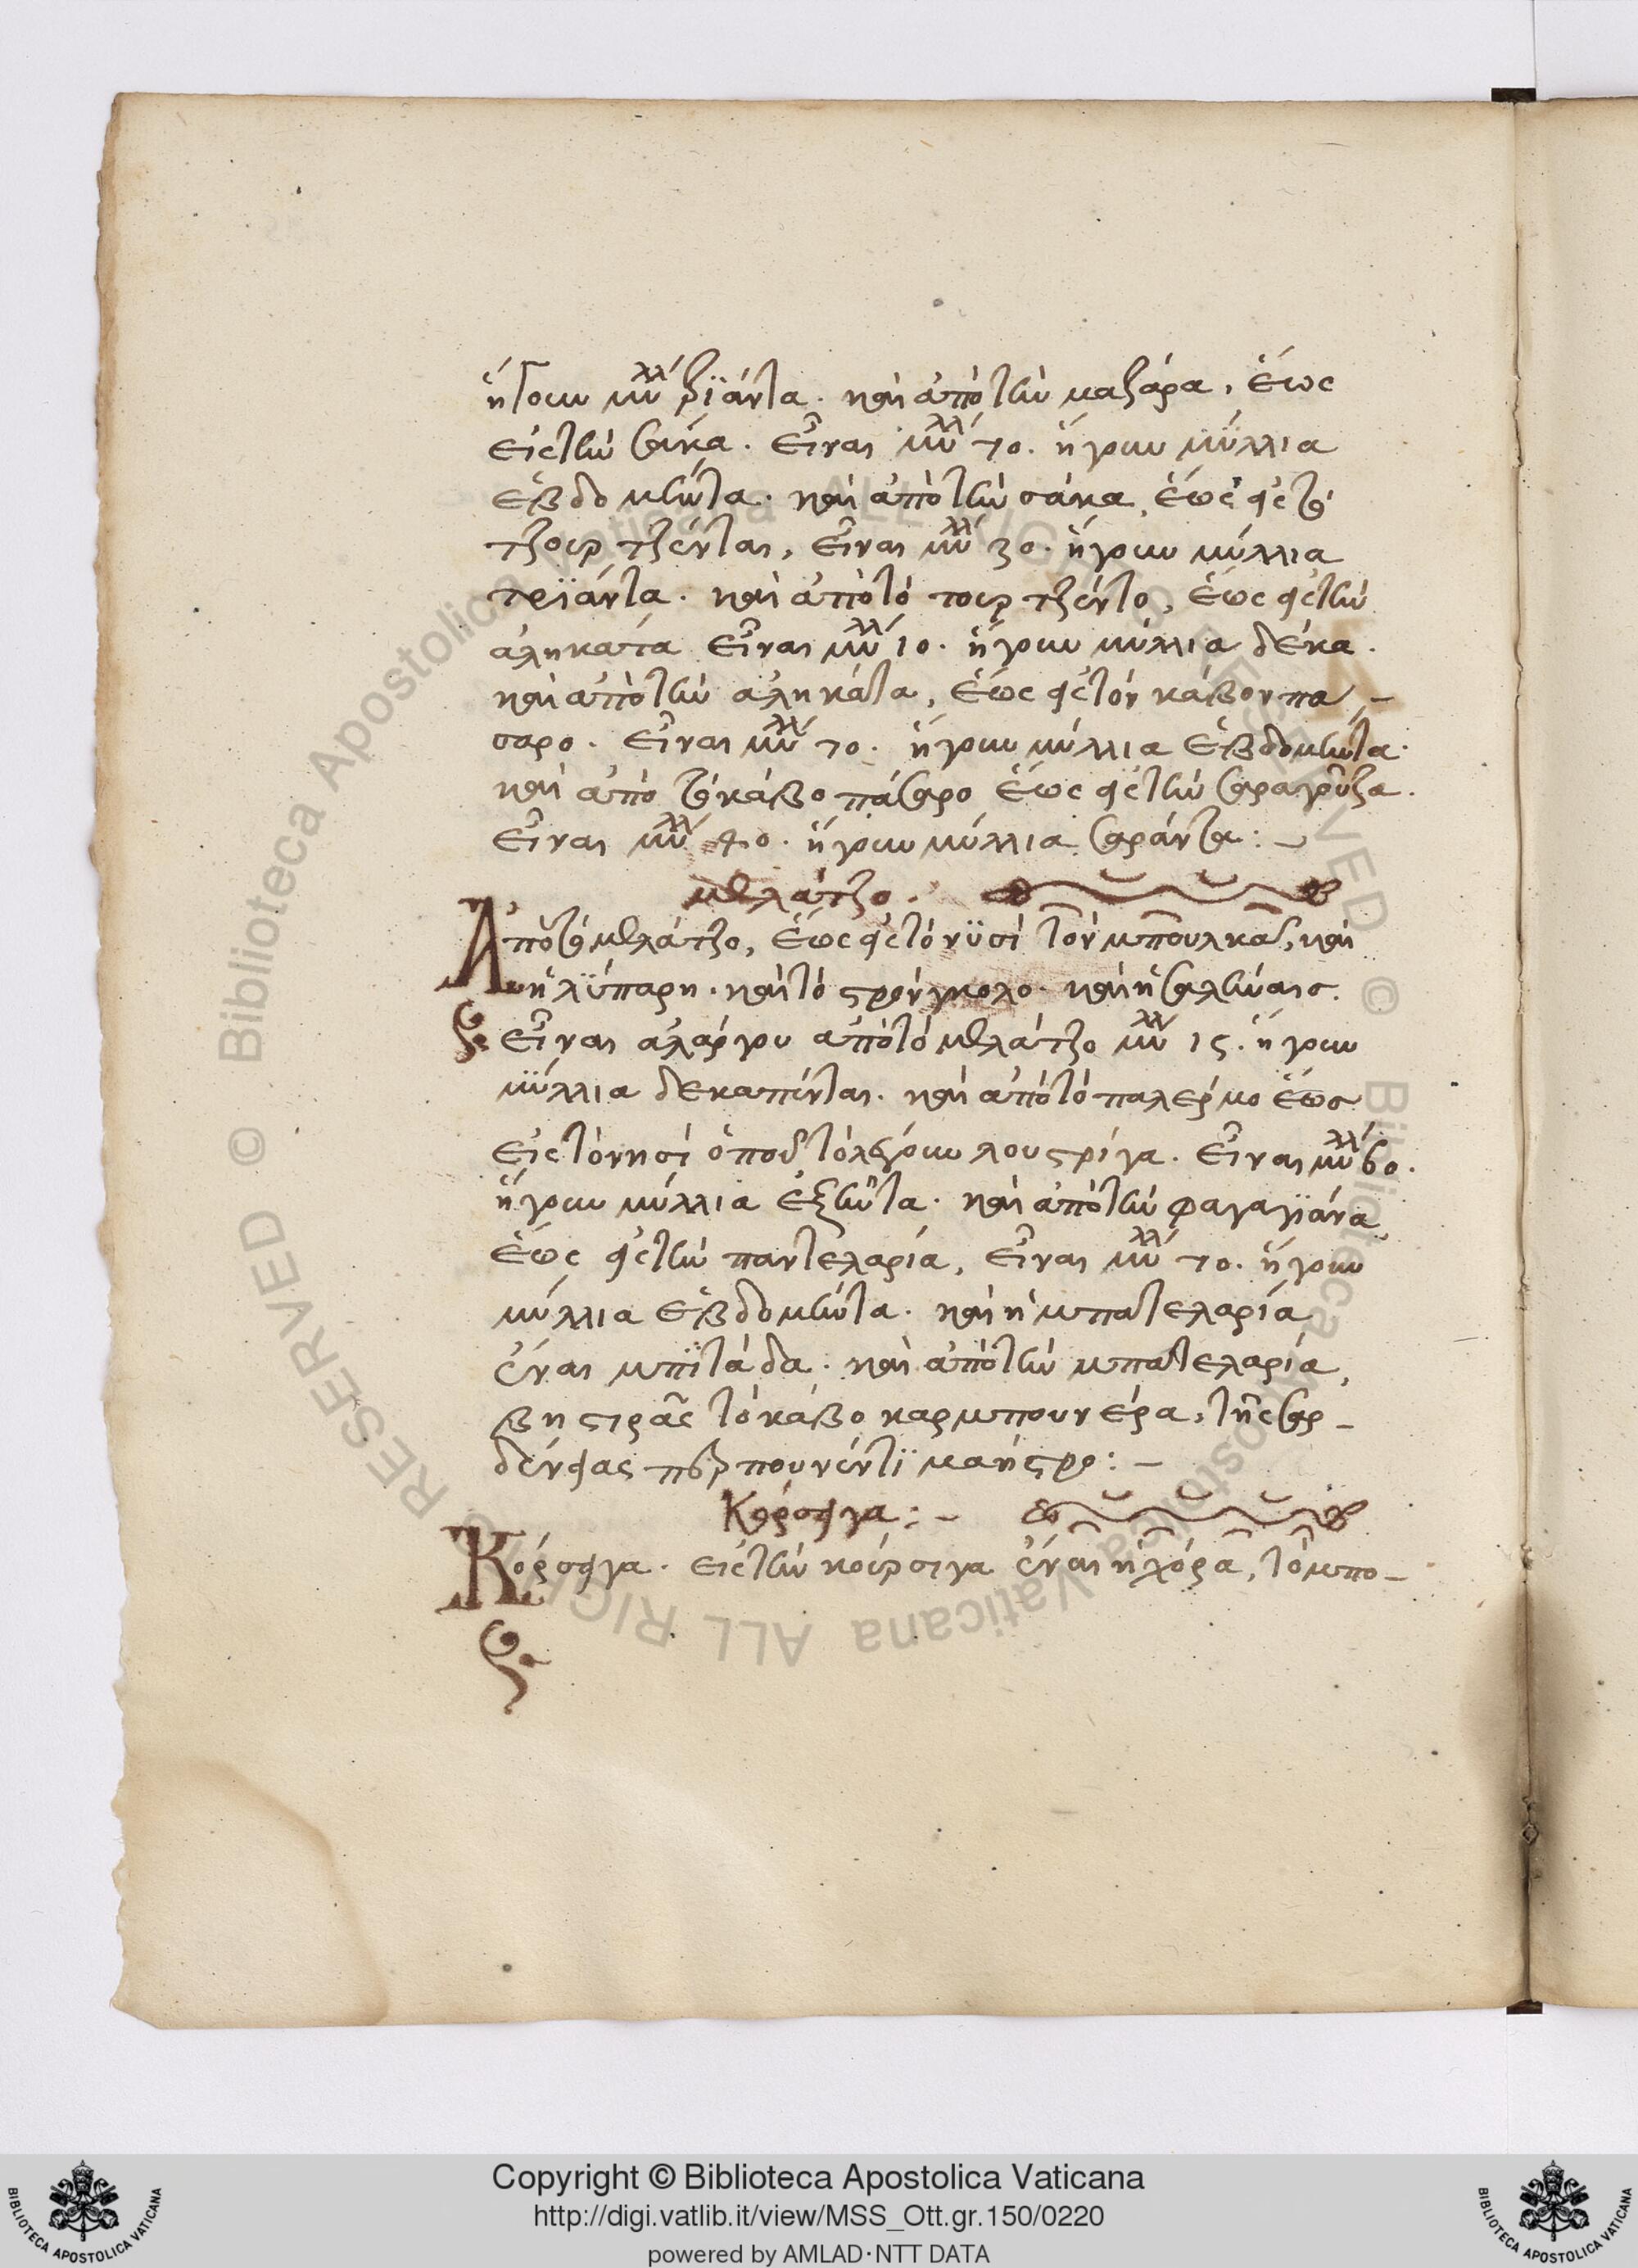 ἤγουν μύλλ τρϊάντα. καὶ ἀπὸ τὴν μαζάρα, ἕως
εἰς τὴν σάκα. εἶναι μύλλ 70. ἤγουν μΰλλια
ἑβδομήντα. καὶ ἀπὸ τὴν σάκα, ἕως εἰς τὸ
τζουρτζένται, εἶναι μύλλ 30. ἤγουν μύλλια
τρϊάντα. καὶ ἀπὸ τὸ τουρτζέντο, ἕως εἰς τὴν
αληκατα εἶναι μύλλ 10. ἤγουν μύλλια δέκα.
καὶ ἀπὸ τὴν αληκάτα, ἕως εἰς τὸν κάβον πα-
σαρο. εἶναι μύλλ 70. ἤγουν μύλλια ἑβδομήντα.
καὶ ἀπὸ τὸ κάβο πάσαρο ἕως εἰς τὴν σαραγοῦζα.
εἶναι μύλλ 40. ἤγουν μύλλια σαράντα: –
μελάτζο.
Ἀπὸ τὸ μελάτζο, ἕως εἰς τὸ νϋσὶ τὸν μπουλκα, καὶ
ἡ λΰπαρη. καὶ τὸ στρόνγκολο. καὶ ἡ σαλήναις.
εἶναι αλάργου ἀπὸ τὸ μελάτζο μύλλ 15. ἤγουν
μΰλλια δεκαπένται. καὶ ἀπὸ τὸ παλέρμο ἕως
εἰς τὸ νησὶ ὁποῦ τὸ λέγουν λουστρίγα. εἶναι μύλλ 60.
ἤγουν μύλλια ἑξῆντα. καὶ ἀπὸ τὴν φαγαγϊάνα
ἕως εἰς τὴν παντελαρία, εἶναι μύλλ 70. ἤγουν
μύλλια ἑβδομήντα. καὶ ἡ μπατελαρία
ἔναι μπϊτάδα. καὶ ἀπὸ τὴν μπατελαρία,
βηστρᾶς τὸ κάβο καρμπουνέρα, τῆς σαρ-
δένιας περ πουνέντϊ μαήστρο: –
Κόρσιγα: –
Κόρσιγα. εἰς τὴν κούρσιγα ἔναι ἡ χόρα, τὸ μπο-
Copyright © Biblioteca Apostolica Vaticana
http://digi.vatlib.it/view/MSS_Ott.gr.150/0220
powered by AMLAD·NTT DATA
BIBLIOTECA APOSTOLICA VATICANA
BIBLIOTECA APOSTOLICA VATICANA
© Biblioteca Apostolica Vaticana ALL RIGHTS RESERVED
© Biblioteca Apostolica Vaticana ALL RIGHTS RESERVED